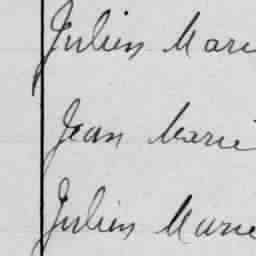 Julien Marie
Jean Marie
Julien Marie